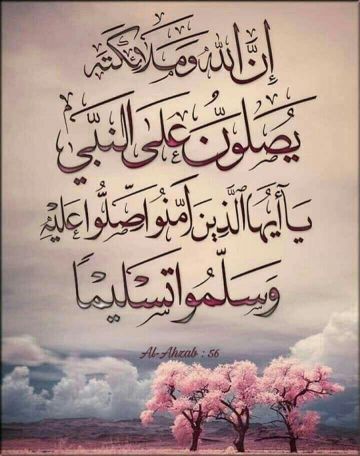 إِنَّ اللَّهَ وَمَلَائِكَتَهُ
يُصَلُّونَ عَلَى النَّبِيِّ
يَا أَيُّهَا الَّذِينَ آمَنُوا صَلُّوا عَلَيْهِ
وَسَلِّمُوا تَسْلِيمًا
Al-Ahzab : 56